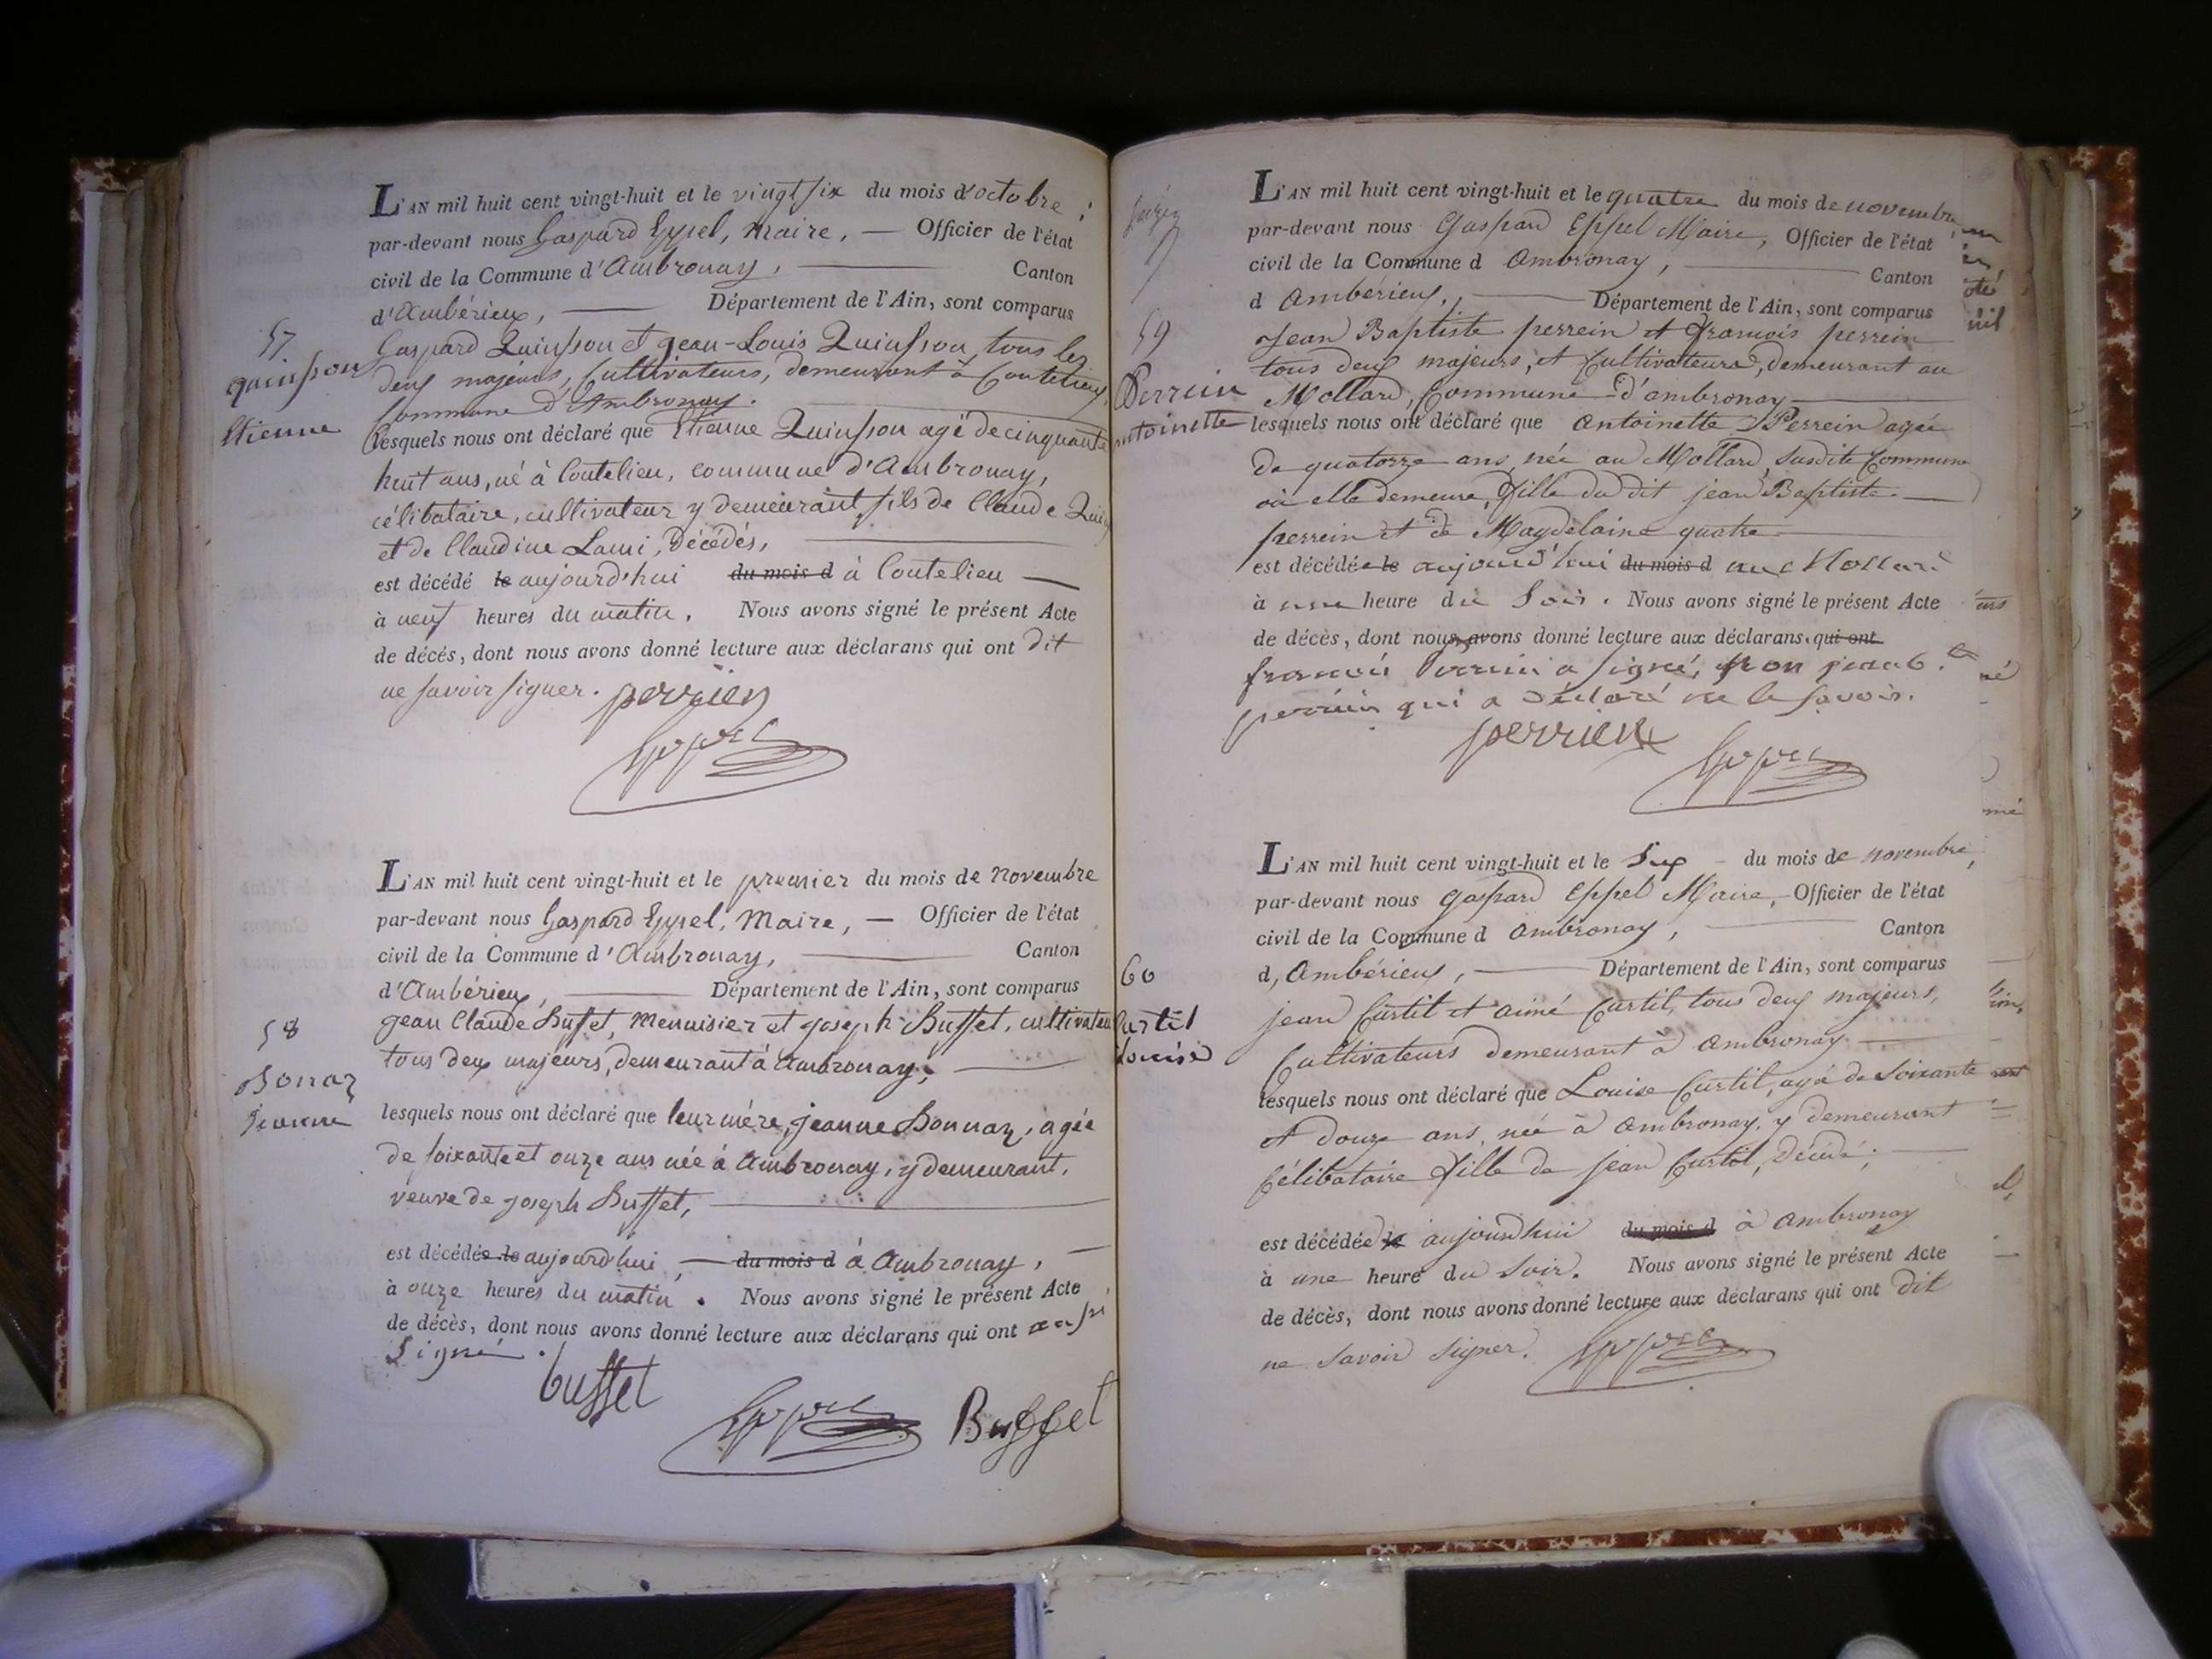 L'AN mil huit cent vingt-huit et le vingt six du mois d'octobre ;
par-devant nous Gaspard Eppel, Maire, — Officier de l'état
civil de la Commune d'Ambronay, — Canton
d'Ambérieux, — Département de l'Ain, sont comparus
57
quinsson
Etienne
Gaspard Quinsson et Jean-Louis Quinsson, tous les
deux majeurs, Cultivateurs, demeurant à Coutelieu,
Commune d'Ambronay.
lesquels nous ont déclaré que Etienne Quinsson agé de cinquante
huit ans, né à Coutelieu, commune d'Ambronay,
célibataire, cultivateur y demeurant, fils de Claude
et de Claudine Lami, Décédés,
est décédé le aujourd'hui du mois d à Coutelieu —
à neuf heures du matin. Nous avons signé le présent Acte
de décés, dont nous avons donné lecture aux déclarans qui ont dit
ne savoir signer. perrien
Eppel
L'AN mil huit cent vingt-huit et le premier du mois de Novembre
par-devant nous Gaspard Eppel, Maire, — Officier de l'état
civil de la Commune d'Ambronay, — Canton
d'Ambérieux, — Département de l'Ain, sont comparus
58
Bonaz
Jeanne
Jean Claude Buffet, Menuisier et Joseph Buffet, cultivateur
tous deux majeurs, demeurant à Ambronay, —
lesquels nous ont déclaré que leur mère, Jeanne Bonnaz, agée
de soixante et onze ans née à Ambronay, y demeurant,
veuve de Joseph Buffet, —
est décédée le aujourd'hui, — du mois d à Ambronay, —
à onze heures du matin. Nous avons signé le présent Acte
de décès, dont nous avons donné lecture aux déclarans qui ont aussi
Signé.
buffet
Eppel
Buffet
L'AN mil huit cent vingt-huit et le quatre du mois de novembre,
par-devant nous Gaspard Eppel Maire, Officier de l'état
civil de la Commune d Ambronay, — Canton
d Ambérieux, — Département de l'Ain, sont comparus
59
Perrein
antoinette
Jean Baptiste perrein et François perrein
tous deux majeurs, et Cultivateurs, demeurant au
Mollard, Commune d'ambronay —
lesquels nous ont déclaré que Antoinette Perrein agée
de quatorze ans, née au Mollard, susdite Commune
où elle demeure, fille du dit jean Baptiste —
perrein et de Magdelaine quatre —
est décédée le aujourd'hui du mois d au Mollard
à une heure du Soir. Nous avons signé le présent Acte
de décès, dont nous avons donné lecture aux déclarans. qui ont
françois Perrein a signé, non jean b.te
perrein qui a déclaré ne le savoir.
perrien
Eppel
L'AN mil huit cent vingt-huit et le Six du mois de novembre,
par-devant nous Gaspard Eppel Maire, Officier de l'état
civil de la Commune d Ambronay, — Canton
d, Ambérieux, — Département de l'Ain, sont comparus
60
Curtil
Louise
jean Curtil et aimé Curtil, tous deux majeurs,
Cultivateurs demeurant à Ambronay —
lesquels nous ont déclaré que Louise Curtil, agée de Soixante
et douze ans, née à Ambronay, y demeurant
Célibataire fille de jean Curtil, décédé; —
est décédée le aujourdhui du mois d à Ambronay
à une heure du Soir. Nous avons signé le présent Acte
de décès, dont nous avons donné lecture aux déclarans qui ont dit
ne Savoir Signer. Eppel